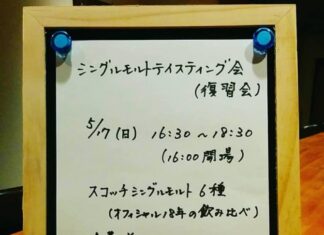 シングルモルトテイスティング会
(復習会)
5/17(日) 16:30~18:30
(16:00開場)
スコッチシングルモルト6種
(オフィシャル18年の飲み比べ)